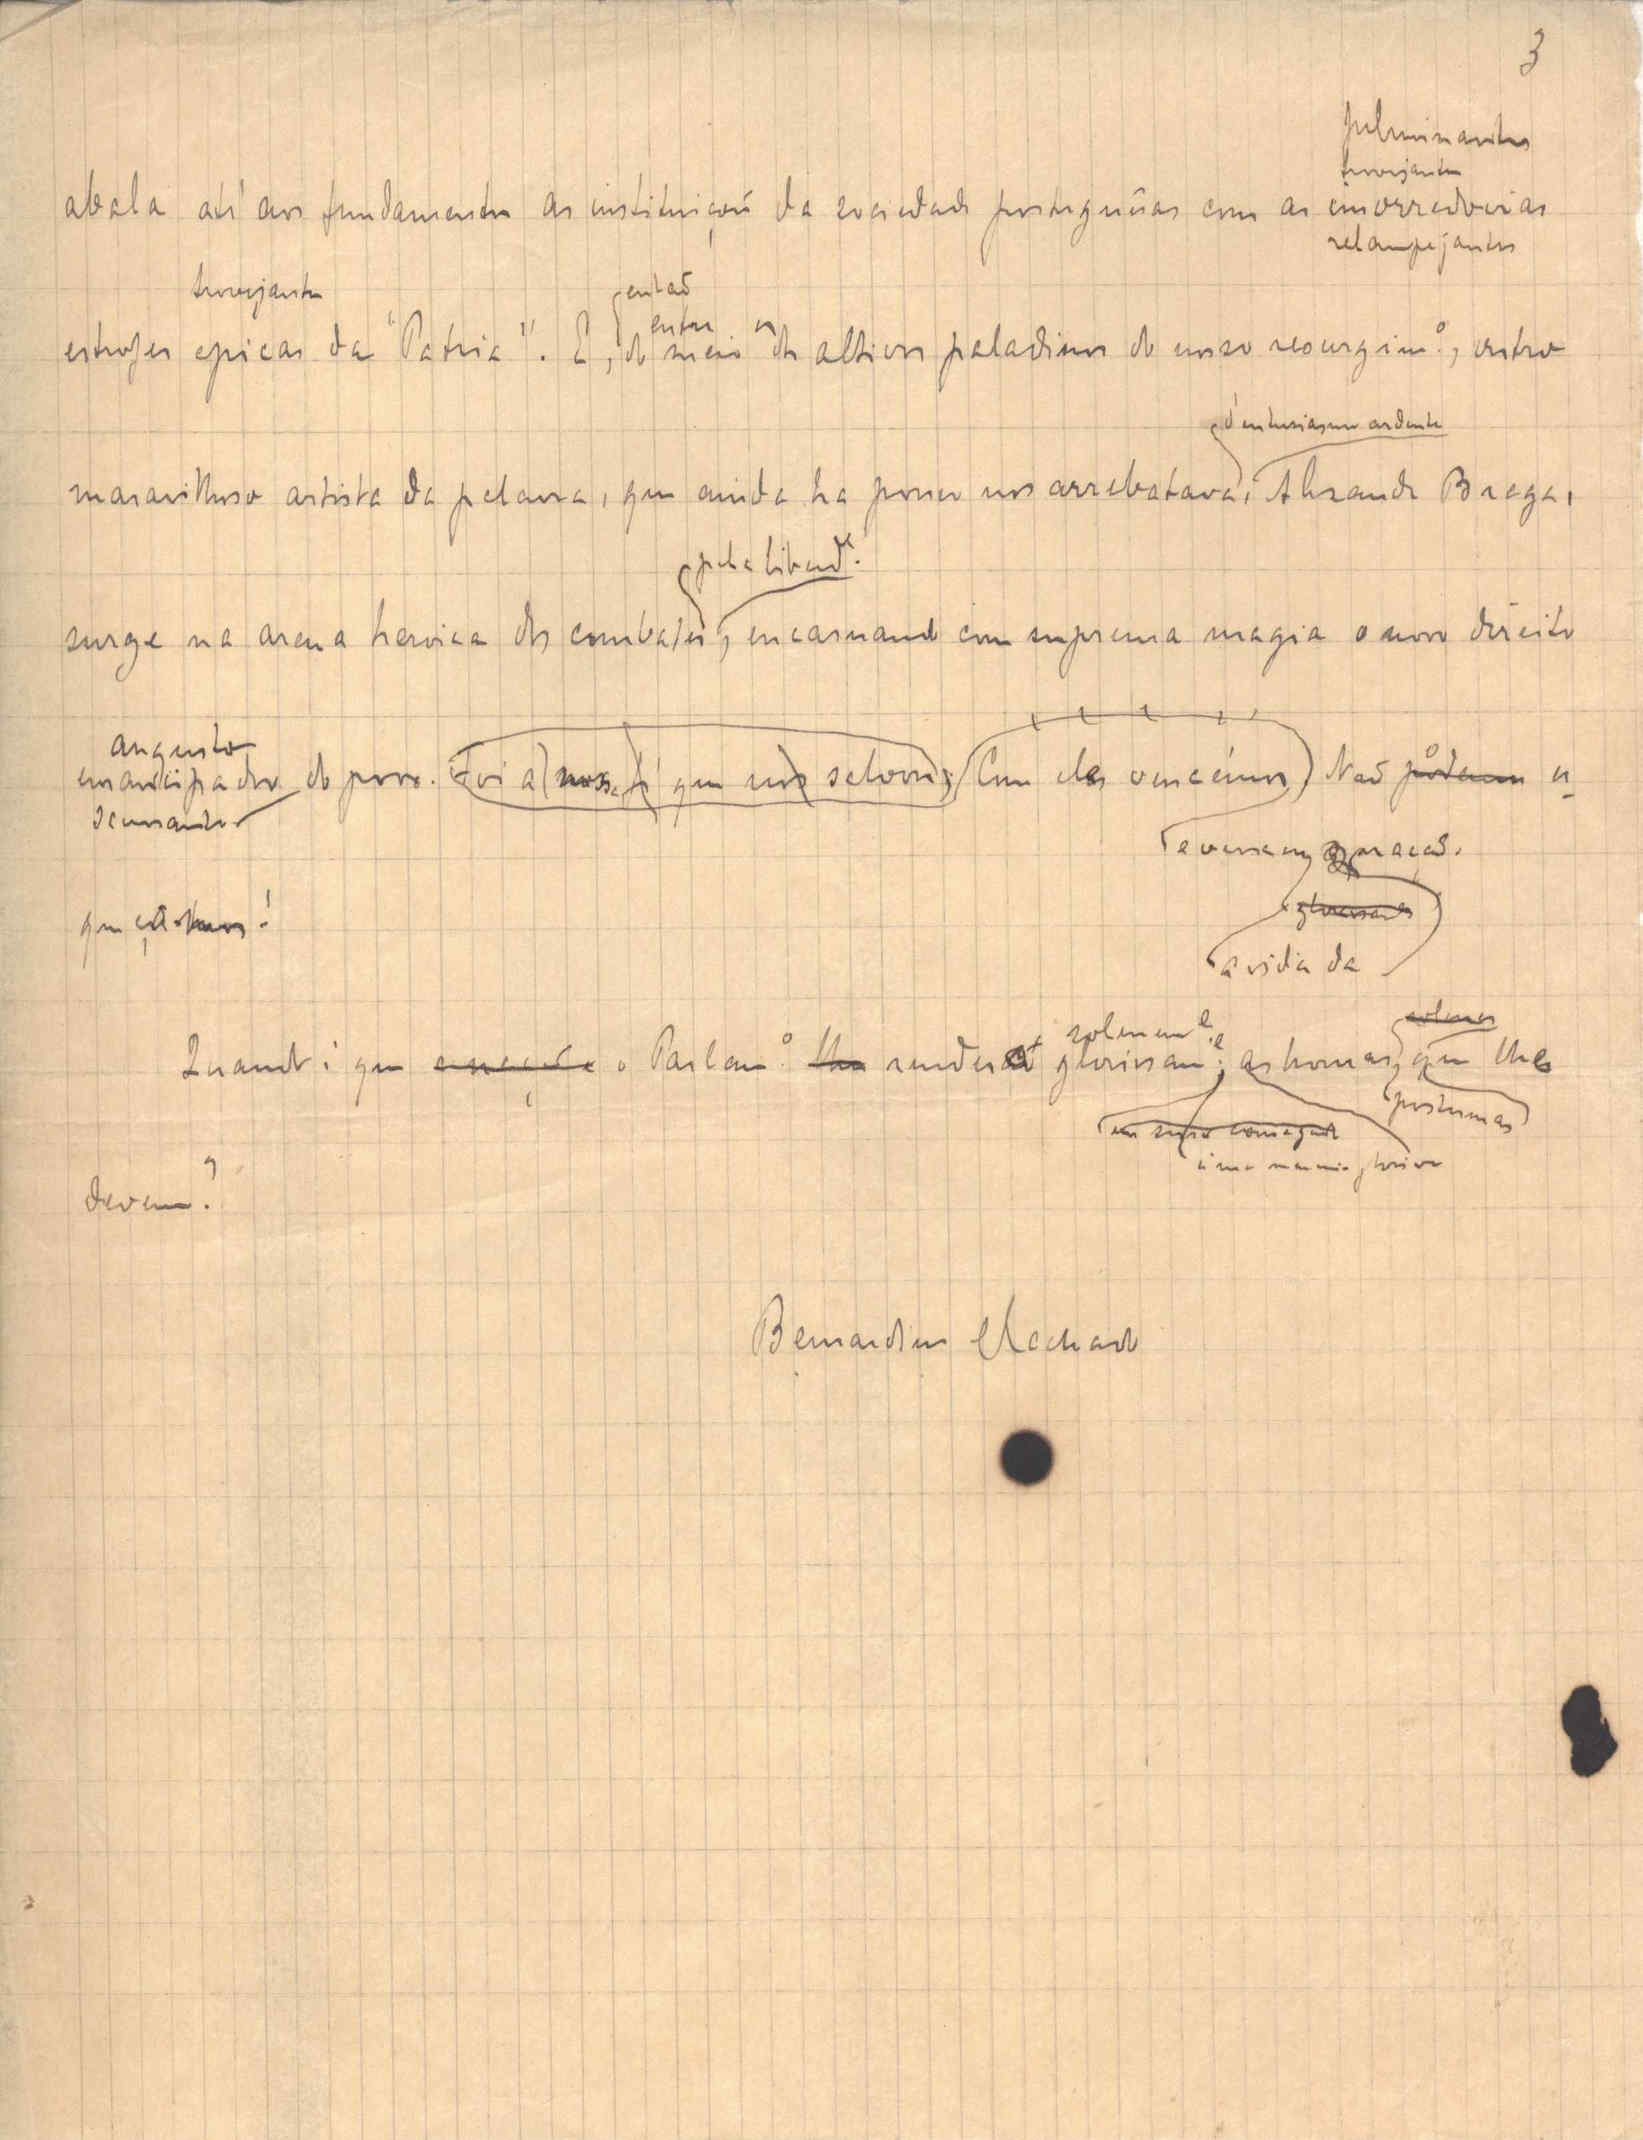 3
fulminantes
trovejantes
abala até aos fundamentos as instituições da sociedade portuguêsas com as imorredoiras
relampejantes
trovejantes
então
entre os
estrofes epicas da "Patria". E, do meio de altivos paladinos do nosso resurgim.º, outro
d'entusiasmo ardente
maravilhoso artista da palavra, que ainda ha pouco nos arrebatava, Alexandre Braga,
pela liberd.e
surge na arena heroica dos combates, encarnando com suprema magia o novo direito
augusto
emancipador do povo. Foi a nossa fé que nos salvou; Com eles vencémos) Não pódem es
a nação.
gloriosas
a vida da
que !
Quando é que a nação o Parlam.º lhes renderá solenem.e gloriosam.e as honras, que lhes
solenes
postumas
devem?
Bernardino Machado